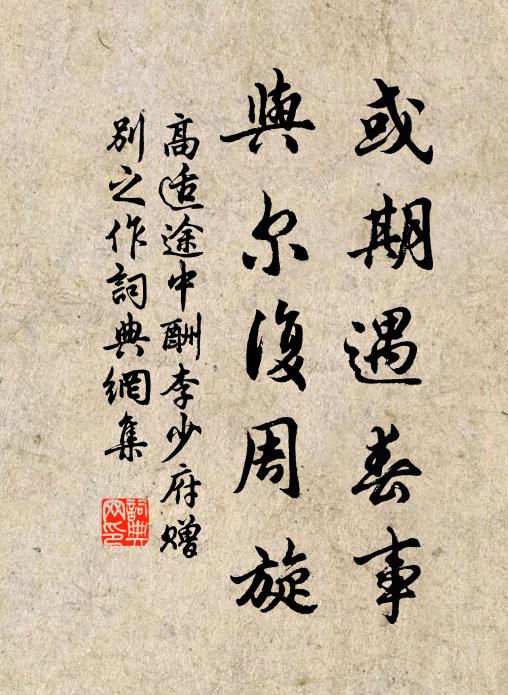 或期遇春事
與尔復周旋
高适途中酬李少府贈
別之作詞典網集
詞典
网印